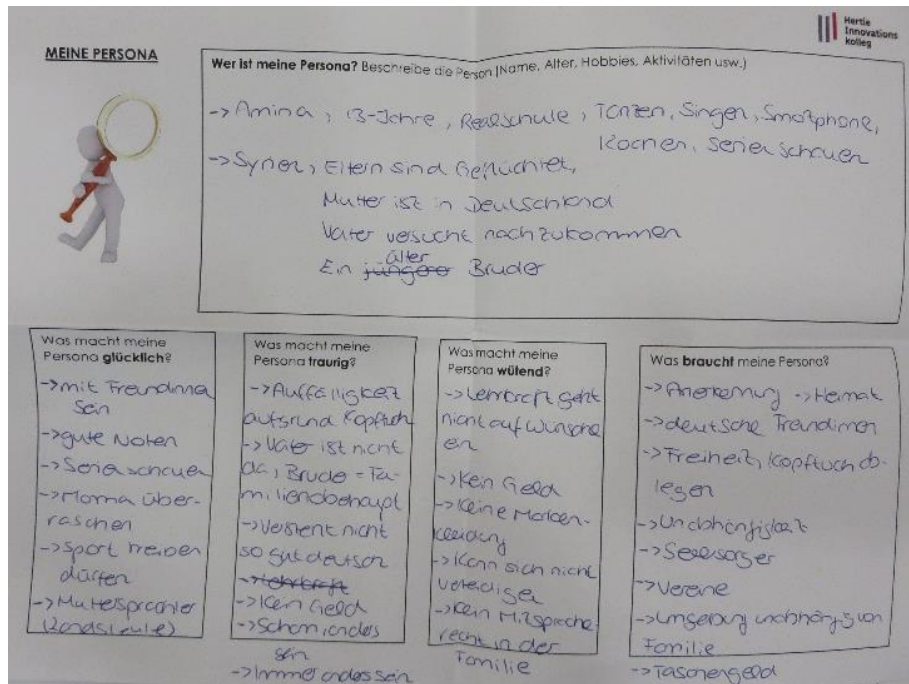 Hertie
Innovations
kolleg
MEINE PERSONA
Wer ist meine Persona? Beschreibe die Person (Name, Alter, Hobbies, Aktivitäten usw.)
-> Amina, 13-Jahre, Realschule, Tanzen, Singen, Smartphone,
Kochen, Serien schauen
-> Syrien, Eltern sind Geflüchtet,
Mutter ist in Deutschland
Vater versucht nachzukommen
älter
Ein jüngere Bruder
Was macht meine
Persona glücklich?
-> mit Freundinnen
sein
-> gute Noten
-> Serien schauen
-> Mama über-
raschen
-> Sport treiben
dürfen
-> Muttersprachler
(Landsleute)
Was macht meine
Persona traurig?
-> Auffälligkeit
aufgrund Kopftuch
-> Vater ist nicht
da, Bruder = Fa-
milienoberhaupt
-> Versteht nicht
so gut deutsch
-> Lehrkraft
-> Kein Geld
-> Scham, anders
sein
-> Immer anders sein
Was macht meine
Persona wütend?
-> Lehrkraft geht
nicht auf Wünsche
ein
-> Kein Geld
-> Keine Marken-
kleidung
-> Kann sich nicht
verteidigen
-> Kein Mitsprache
recht in der
Familie
Was braucht meine Persona?
-> Anerkennung -> Heimat
-> deutsche Freundinnen
-> Freiheit, Kopftuch ab-
legen
-> Unabhängigkeit
-> Seelsorger
-> Vereine
-> Umgebung unabhängig von
Familie
-> Taschengeld